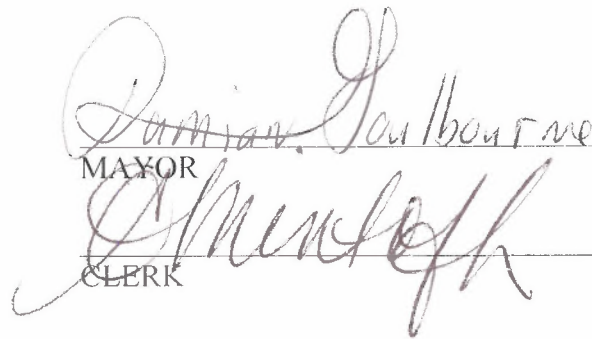 Damian Goulbourne
MAYOR
CLERK